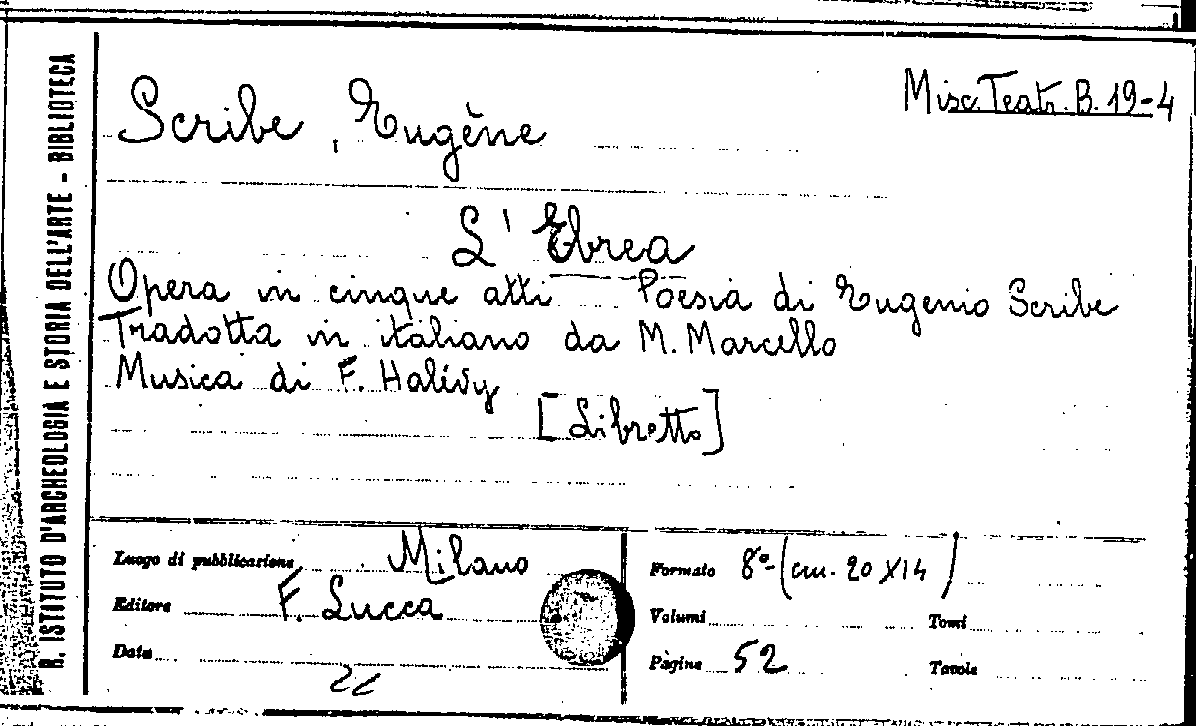 R. ISTITUTO D'ARCHEOLOGIA E STORIA DELL'ARTE - BIBLIOTECA
Misc. Teatr. B. 19-4
Scribe, Eugène
L'Ebrea
Opera in cinque atti Poesia di Eugenio Scribe
Tradotta in italiano da M. Marcello
Musica di F. Halévy
[Libretto]
Luogo di pubblicazione Milano
Editore F. Lucca
Data
Formato 8º (cm. 20 X 14)
Volumi Tomi
Pagine 52 Tavole